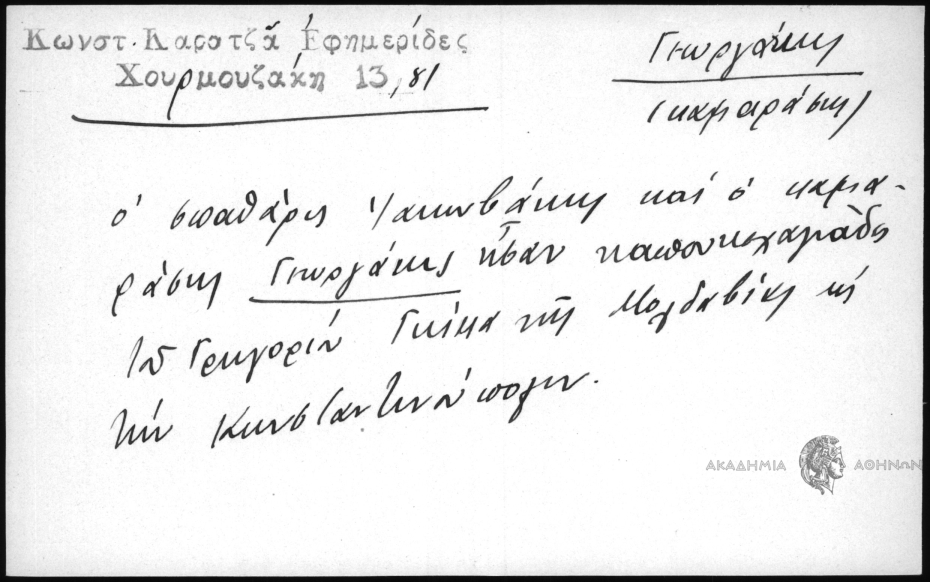 Κωνστ. Καρατζᾶ Ἐφημερίδες
Χουρμουζάκη 13,81
Γιωργάκης
(καμαράσης)
ὁ σπαθάρις Γιακωβάκης καί ὁ καμα-
ράσης Γιωργάκης ἦσαν καπουκεχαγιάδες
τοῦ Γρηγορίου Γκίκα τῆς Μολδαβίας εἰς
τήν Κωνσταντινούπολιν.
ΑΚΑΔΗΜΙΑ ΑΘΗΝΩΝ